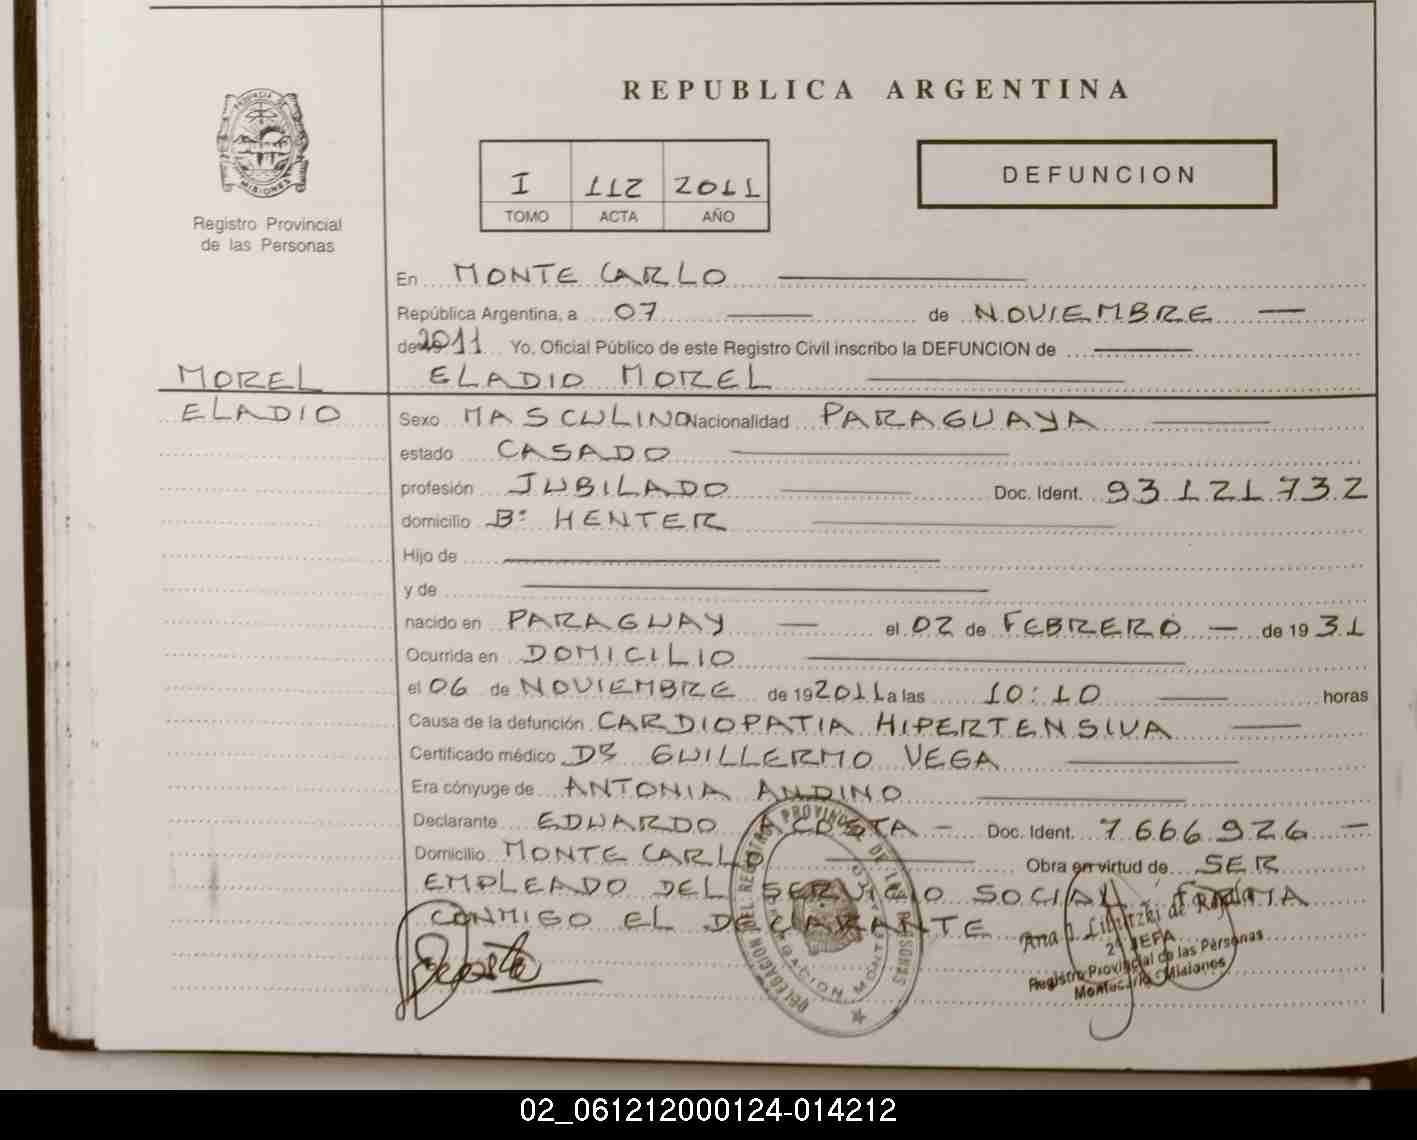 REPUBLICA ARGENTINA
PROVINCIA DE MISIONES
Registro Provincial
de las Personas
I 112 2011
TOMO ACTA AÑO
DEFUNCION
En MONTE CARLO
República Argentina, a 07 de NOVIEMBRE
de 2011 Yo, Oficial Público de este Registro Civil inscribo la DEFUNCION de
MOREL
ELADIO
ELADIO MOREL
Sexo MASCULINO Nacionalidad PARAGUAYA
estado CASADO
profesión JUBILADO Doc. Ident. 93.121.732
domicilio Bº HENTER
Hijo de
y de
nacido en PARAGUAY el 02 de FEBRERO de 1931
Ocurrida en DOMICILIO
el 06 de NOVIEMBRE de 192011 a las 10:10 horas
Causa de la defunción CARDIOPATIA HIPERTENSIVA
Certificado médico Dr GUILLERMO VEGA
Era cónyuge de ANTONIA ANDINO
Declarante EDUARDO ACOSTA Doc. Ident. 7.666.926
Domicilio MONTE CARLO Obra en virtud de SER
EMPLEADO DEL SERVICIO SOCIAL FIRMA
CONMIGO EL DECLARANTE
DELEGACION DEL REGISTRO PROVINCIAL DE LAS PERSONAS
2º JEFA
Registro Provincial de las Personas
Montecarlo Misiones
02_061212000124-014212